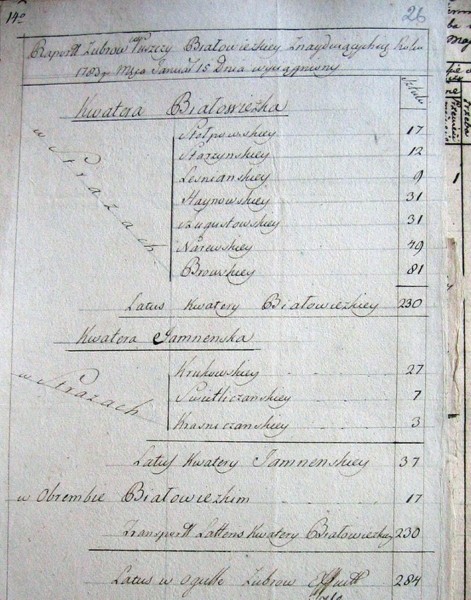 14o
26
Raportt Zubrow Puszczy Białowiezkiey Znayduiących Roku
1783go Msca Januar 15 Dnia wyciągniony
Sztuki
Kwatera Białowiezka
w Strazach
Stołpowskiey 17
Starzynskiey 12
Lesnianskiey 9
Haynowskiey 31
Augustowskiey 31
Narewskiey 49
Browskiey 81
Latus Kwatery Białowiezkiey 230
Kwatera Jamnenska
w Strazach
Krukowskiey 27
Swietliczanskiey 7
Krasniczanskiey 3
Latus Kwatery Jamnenskiey 37
w Obrembie Białowiezkim 17
Transportt Lattens Kwatery Białowiezkiey 230
Latus w ogulle Zubrow 284